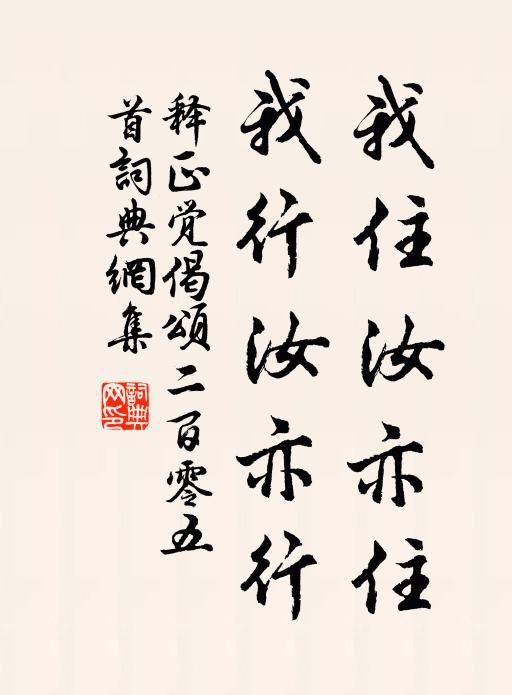 我住汝亦住
我行汝亦行
释正觉偈頌二百零五
首詞典網集
詞典網印